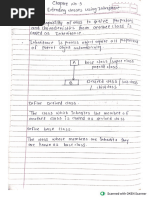 Chapter no 3
Extending classes using Inheritance
capability of class to derive properties
and characteristics from another class is
known as Inheritance
Inheritance is process object acquire all properties
of parent object automatically
A
Base class / super class
B
Derived class /
class
Define Derived class
The class which inherits the members of
another class is called as derived class
Define base class
The class whose members are inherited
known as base class
Scanned with OKEN Scanner